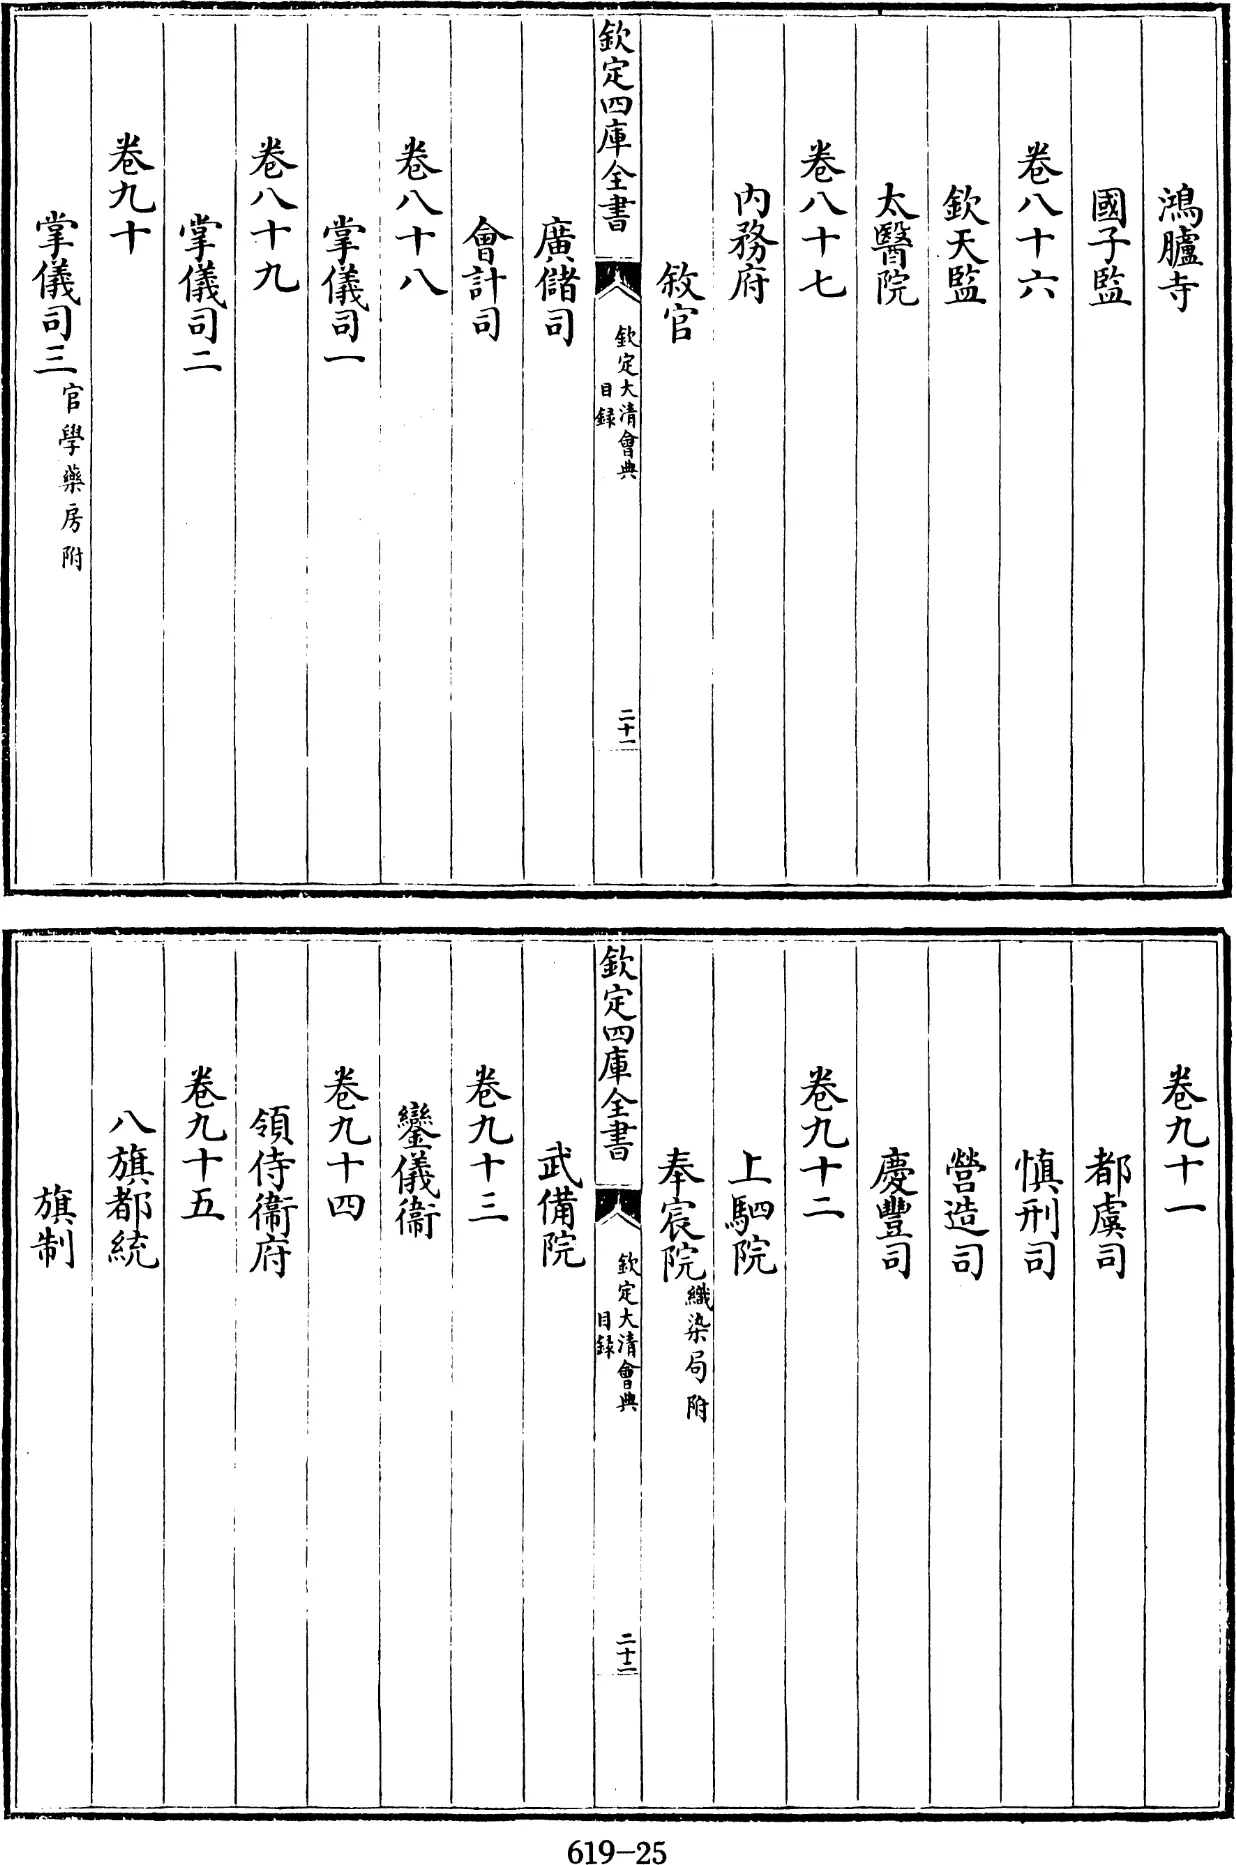 鴻臚寺
國子監
卷八十六
欽天監
太醫院
卷八十七
內務府
敘官
欽定四庫全書
欽定大清會典
目録
二十一
廣儲司
會計司
卷八十八
掌儀司一
卷八十九
掌儀司二
卷九十
掌儀司三官學藥房附
卷九十一
都虞司
慎刑司
營造司
慶豐司
卷九十二
上駟院
奉宸院織染局附
欽定四庫全書
欽定大清會典
目録
二十二
武備院
卷九十三
鑾儀衞
卷九十四
領侍衞府
卷九十五
八旗都統
旗制
619-25